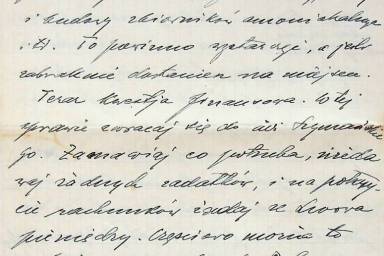 i budowy zbiorników amoniakalnych
i t.d. To powinno wystarczyć, a jak
zabraknie dostaniem na miejscu.
Teraz kwestja finansowa. W tej
sprawie zwracaj się do inż Szymańskie
go. Zamawiaj co potrzeba, nie da
waj żadnych zadatków, i na pokry
cie rachunków żądaj ze Lwowa
pieniędzy. Częściowo można to